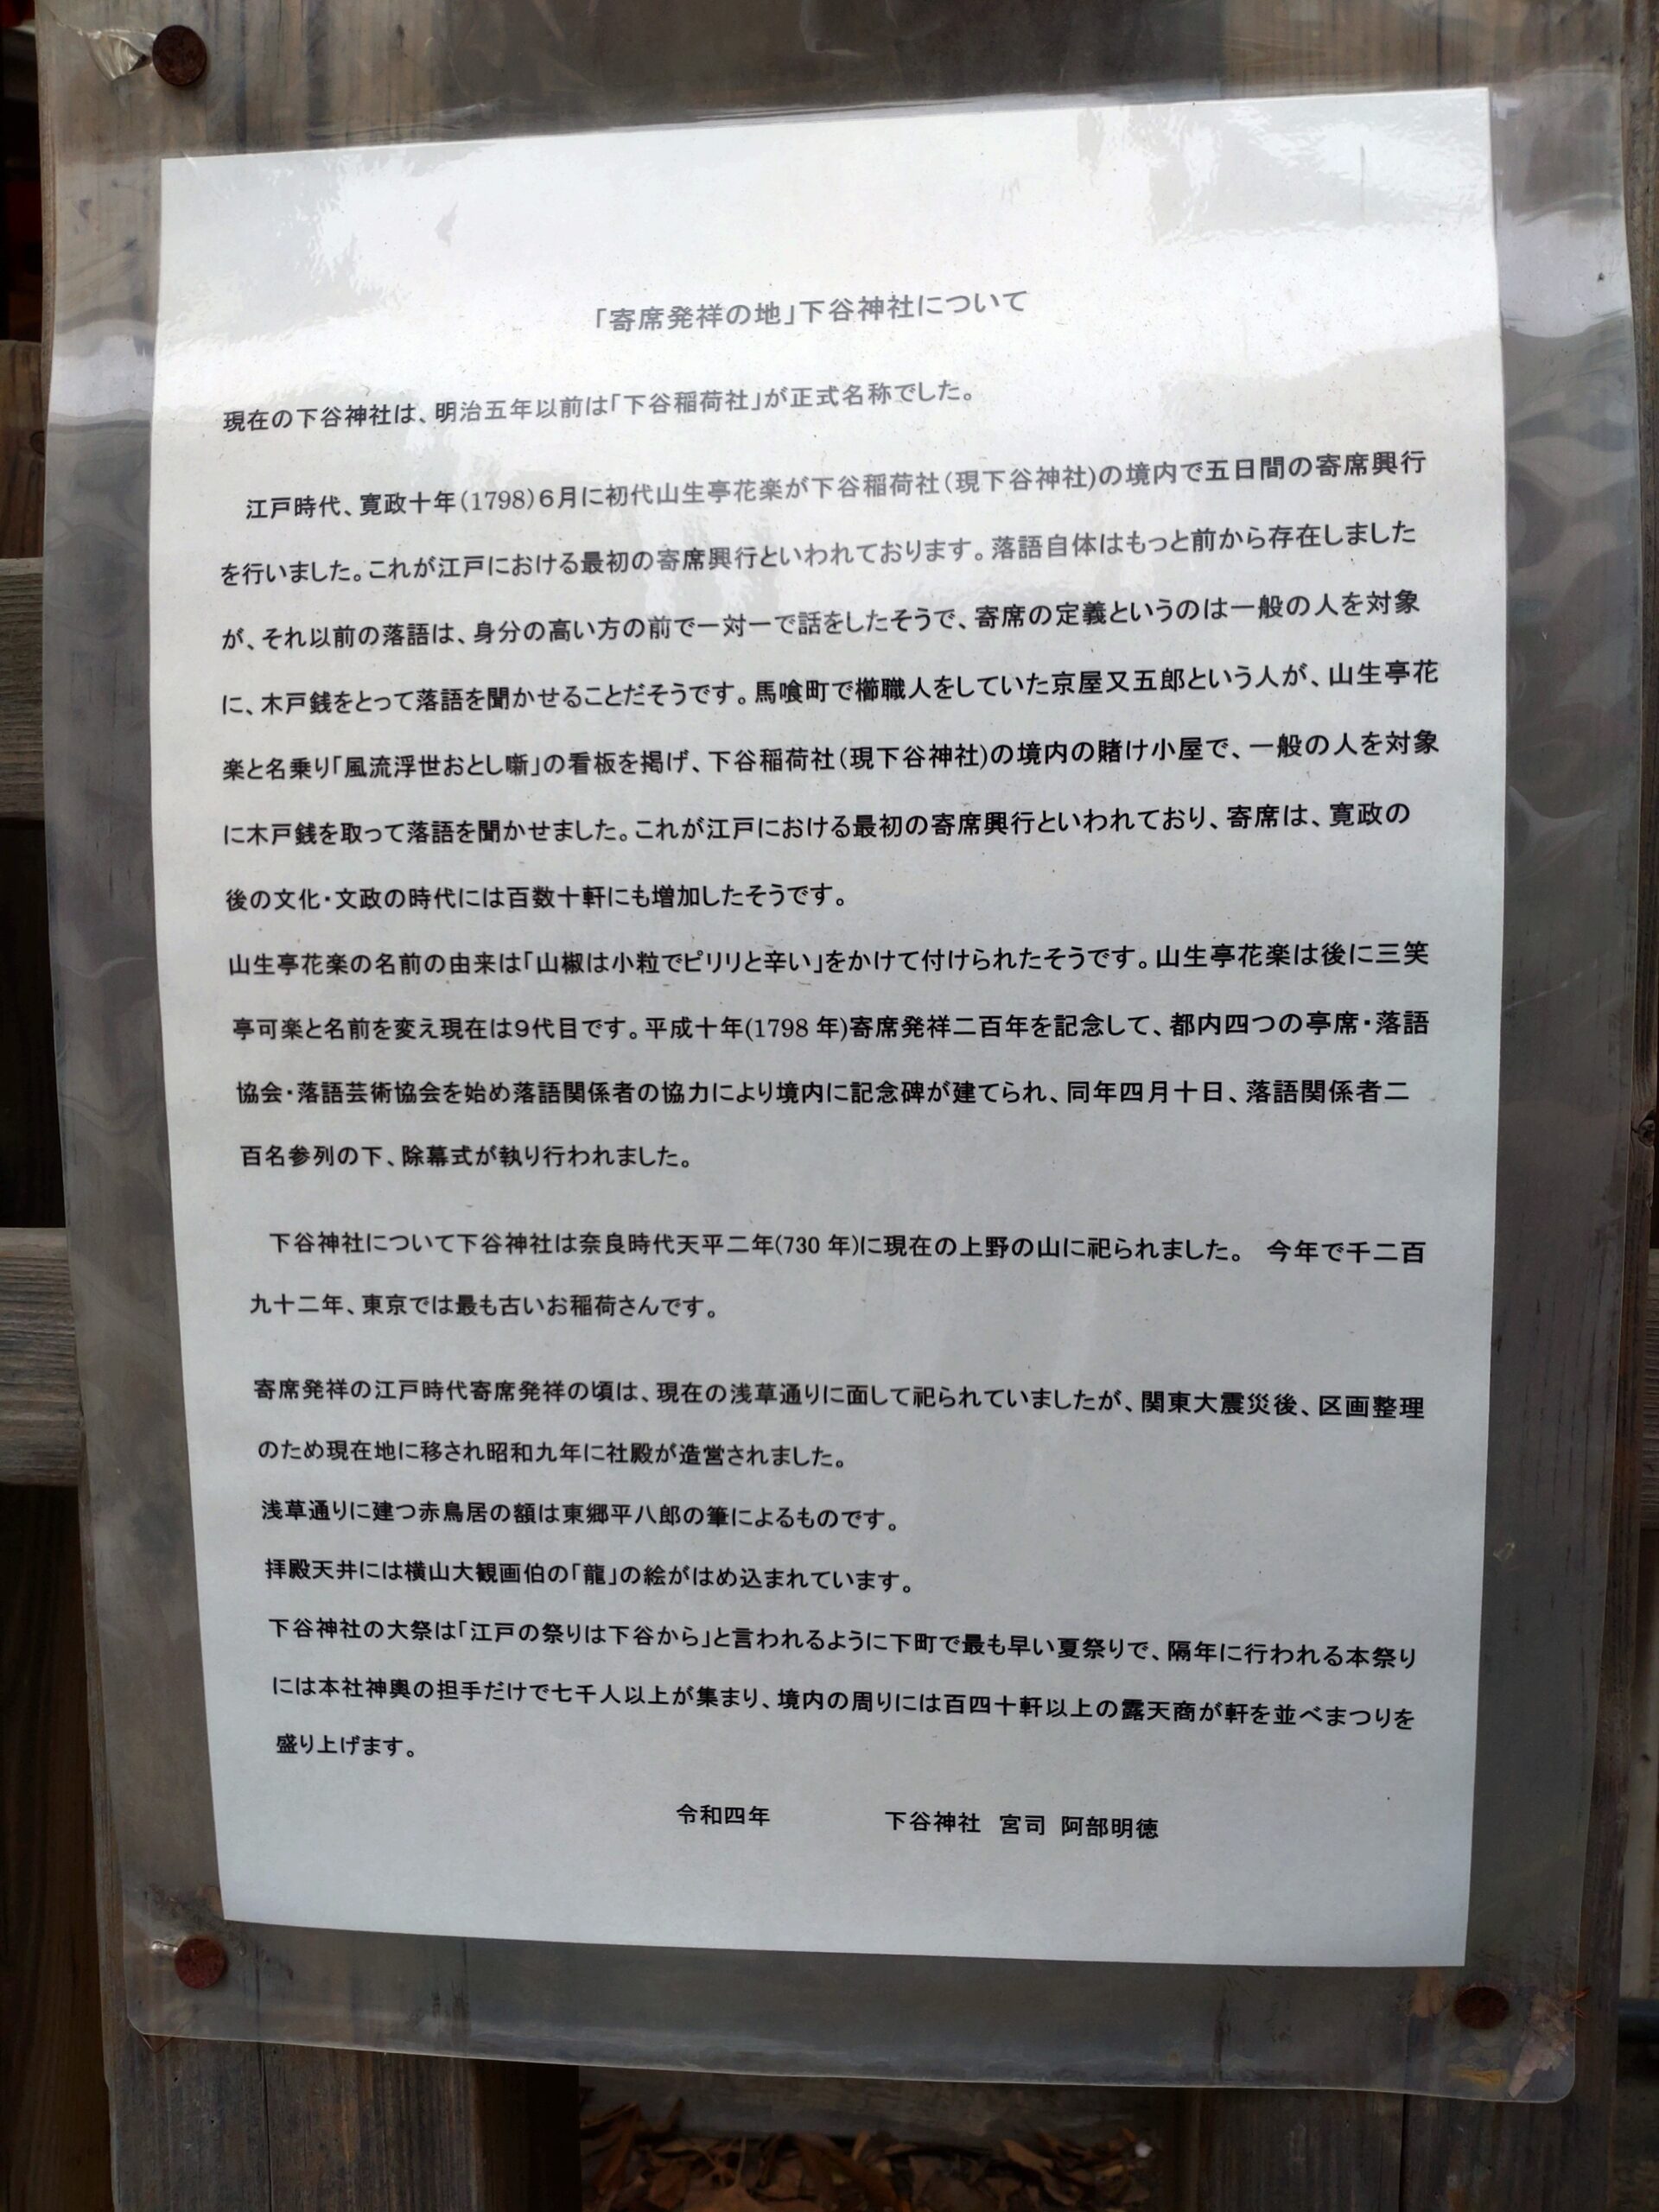 「寄席発祥の地」下谷神社について
現在の下谷神社は、明治五年以前は「下谷稲荷社」が正式名称でした。
江戸時代、寛政十年(1798)6月に初代山生亭花楽が下谷稲荷社(現下谷神社)の境内で五日間の寄席興行
を行いました。これが江戸における最初の寄席興行といわれております。落語自体はもっと前から存在しました
が、それ以前の落語は、身分の高い方の前で一対一で話をしたそうで、寄席の定義というのは一般の人を対象
に、木戸銭をとって落語を聞かせることだそうです。馬喰町で櫛職人をしていた京屋又五郎という人が、山生亭花
楽と名乗り「風流浮世おとし噺」の看板を掲げ、下谷稲荷社(現下谷神社)の境内の賭け小屋で、一般の人を対象
に木戸銭を取って落語を聞かせました。これが江戸における最初の寄席興行といわれており、寄席は、寛政の
後の文化・文政の時代には百数十軒にも増加したそうです。
山生亭花楽の名前の由来は「山椒は小粒でピリリと辛い」をかけて付けられたそうです。山生亭花楽は後に三笑
亭可楽と名前を変え現在は9代目です。平成十年(1798 年)寄席発祥二百年を記念して、都内四つの亭席・落語
協会・落語芸術協会を始め落語関係者の協力により境内に記念碑が建てられ、同年四月十日、落語関係者二
百名参列の下、除幕式が執り行われました。
下谷神社について下谷神社は奈良時代天平二年(730 年)に現在の上野の山に祀られました。 今年で千二百
九十二年、東京では最も古いお稲荷さんです。
寄席発祥の江戸時代寄席発祥の頃は、現在の浅草通りに面して祀られていましたが、関東大震災後、区画整理
のため現在地に移され昭和九年に社殿が造営されました。
浅草通りに建つ赤鳥居の額は東郷平八郎の筆によるものです。
拝殿天井には横山大観画伯の「龍」の絵がはめ込まれています。
下谷神社の大祭は「江戸の祭りは下谷から」と言われるように下町で最も早い夏祭りで、隔年に行われる本祭り
には本社神輿の担手だけで七千人以上が集まり、境内の周りには百四十軒以上の露天商が軒を並べまつりを
盛り上げます。
令和四年 下谷神社 宮司 阿部明徳